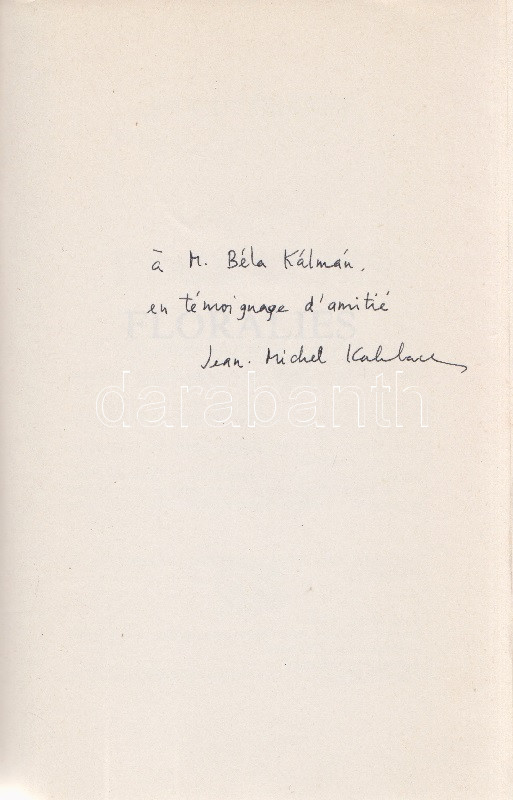 à M. Béla Kálmán,
en témoignage d'amitié
FLORALIES
Jean-Michel
darabanth